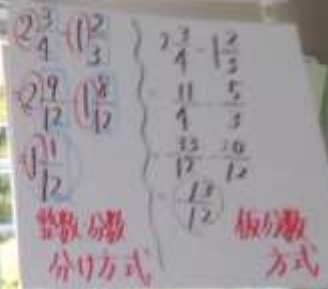 2 3/4 - 1 2/3
2 9/12 - 1 8/12
1 1/12
整数分数
分け方式
2 3/4 - 1 2/3
11/4 - 5/3
33/12 - 20/12
13/12
仮分数
方式